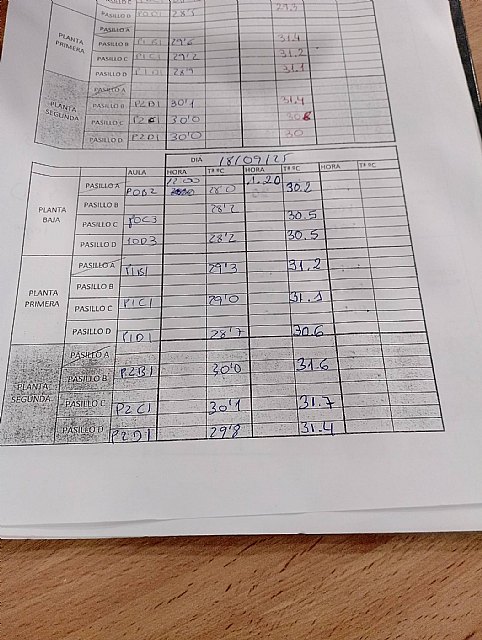 29.3
PASILLO D P0D1 28'5
PASILLO A
PLANTA PRIMERA PASILLO B P1B1 29'6 31.4
PASILLO C P1C1 29'2 31.2
PASILLO D P1D1 28'9 31.1
PASILLO A
PLANTA SEGUNDA PASILLO B P2B1 30'1 31,4
PASILLO C P2C1 30'0
PASILLO D P2D1 30'0 30
DIA 18/09/25
AULA HORA Tª ºC HORA Tª ºC HORA Tª ºC
12:00 1.20
PLANTA BAJA PASILLO A P0B2 28'0 30.2
PASILLO B 28'2
PASILLO C P0C3 30.5
PASILLO D 10D3 28'2 30.5
PLANTA PRIMERA PASILLO A P1B1 29'3 31.2
PASILLO B
PASILLO C P1C1 29'0 31.1
PASILLO D P1D1 28'7 30.6
PLANTA SEGUNDA PASILLO A
PASILLO B P2B1 30'0 31.6
PASILLO C P2C1 30'1 31.7
PASILLO D P2D1 29'8 31.4